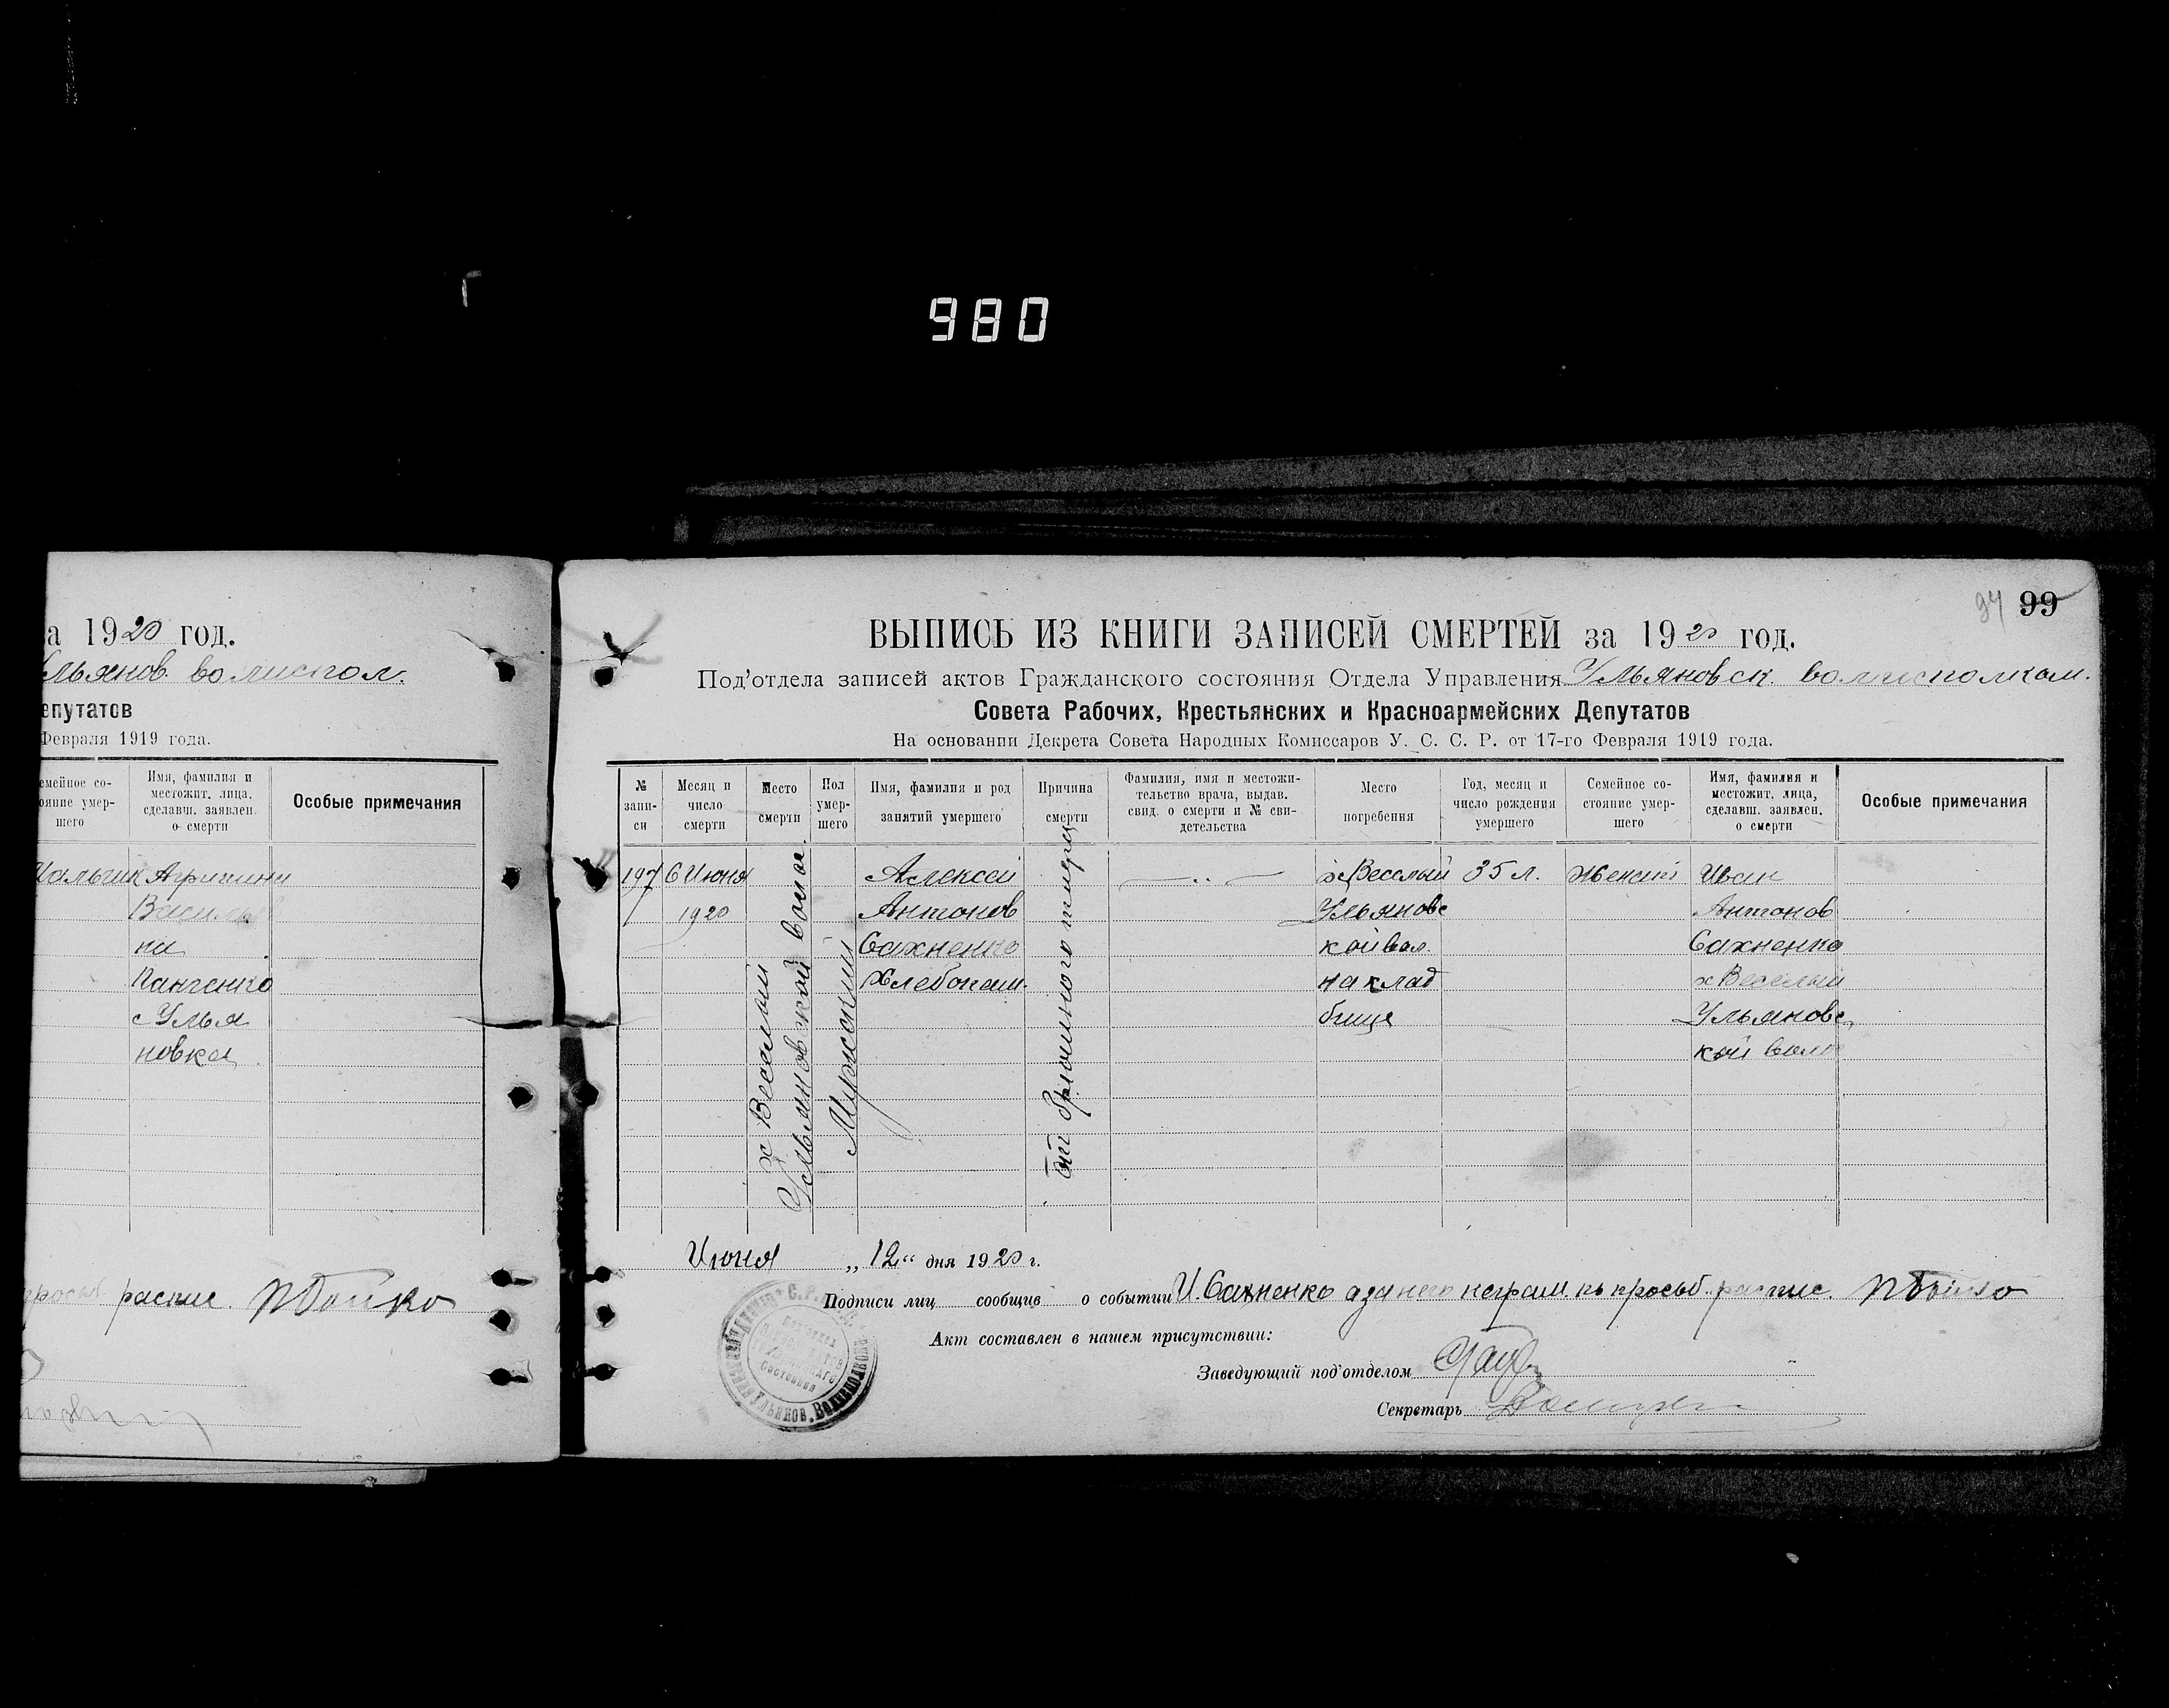 980
а 1920 год.
льянов. волиспол.
епутатов
Февраля 1919 года.
емейное со-
ояние умер-
шего
Имя, фамилия и
местожит. лица,
сделавш. заявлен.
о смерти
Особые примечания
Мальчик
Агрипина
Василь
на
Панченко
с Улья
новка
распис. ПБойко
94 99
ВЫПИСЬ ИЗ КНИГИ ЗАПИСЕЙ СМЕРТЕЙ за 1920 год.
Под'отдела записей актов Гражданского состояния Отдела Управления Ульяновск. волисполком.
Совета Рабочих, Крестьянских и Красноармейских Депутатов
На основании Декрета Совета Народных Комиссаров У. С. С. Р. от 17-го Февраля 1919 года.
№
запи-
си
Месяц и
число
смерти
Место
смерти
Пол
умер-
шего
Имя, фамилия и род
занятий умершего
Причина
смерти
Фамилия, имя и местожи-
тельство врача, выдав.
свид. о смерти и № сви-
детельства
Место
погребения
Год, месяц и
число рождения
умершего
Семейное со-
стояние умер-
шего
Имя, фамилия и
местожит. лица,
сделавш. заявлен.
о смерти
Особые примечания
197
6 Июня
1920
х Веселый
Ульяновской волос.
Мужский
Алексей
Антонов
Сахненко
Хлебопаш.
от брюшного тифа
х Веселый
Ульяновс
кой вол.
на клад
бище
35 л.
Женат
Иван
Антонов
Сахненко
х Веселый
Ульяновс
кой воло
Июня „12“ дня 1920 г.
Подписи лиц сообщив о событии И. Сахненко а за него неграм. по просьб. распис. ПБойко
Акт составлен в нашем присутствии:
Заведующий под'отделом
Секретарь